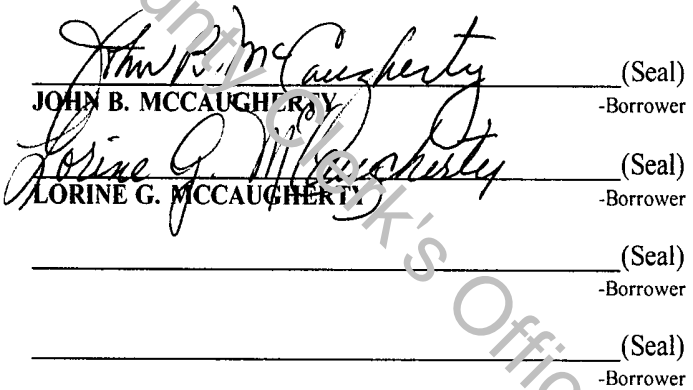 John B. McCaugherty (Seal)
JOHN B. MCCAUGHERTY -Borrower
Lorine G. McCaugherty (Seal)
LORINE G. MCCAUGHERTY -Borrower
(Seal)
-Borrower
(Seal)
-Borrower
unty Clerk's Offic